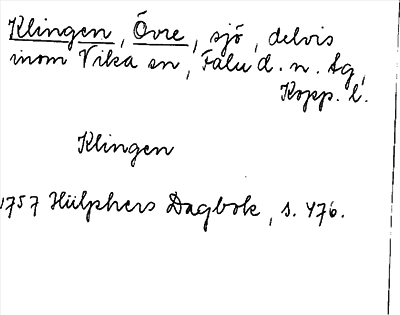 Klingen, Övre, sjö, delvis
inom Vika sn, Falu d. n. tg,
Kopp. l.
Klingen
1757 Hülphers Dagbok, s. 476.